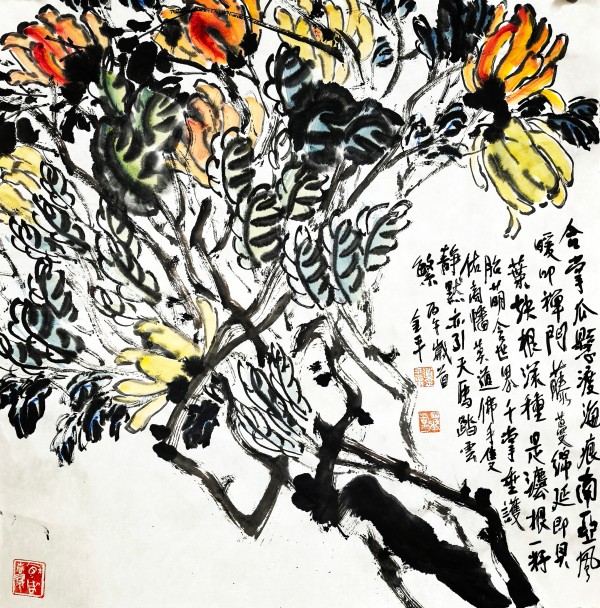 合掌瓜懸渡海痕南亞風
暖叩禅門藤蔓綿延即具
葉块根深種是灋根一籽
胎萌含世界千掌垂護
佑高幡笑道佛手雙
静默亦引天馬踏雲
繁 丙午歲首
金平